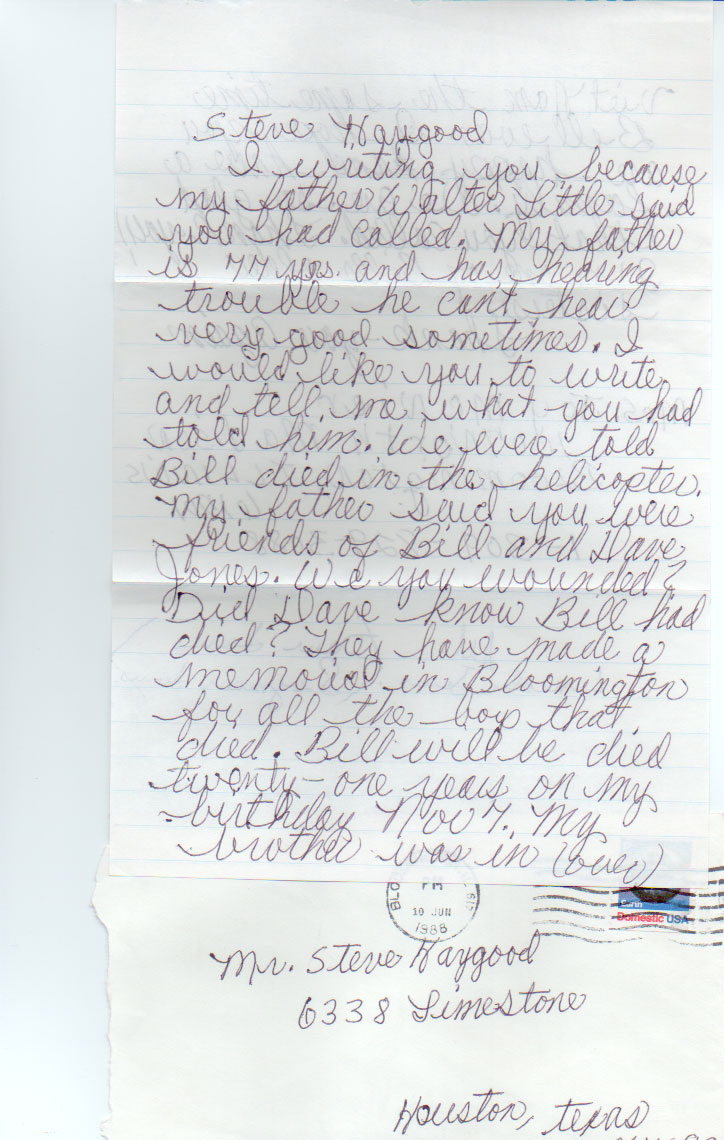 Steve Haygood
I writing you because
my father Walter Little said
you had called. My father
is 77 yrs. and has hearing
trouble he can't hear
very good sometimes. I
would like you to write
and tell me what you had
told him. We were told
Bill died in the helicopter.
My father said you were
friends of Bill and Dave
Jones. We you wounded?
Did Dave know Bill had
died? They have made a
memorial in Bloomington
for all the boys that
died. Bill will be died
twenty-one years on my
birthday Nov 7. My
brother was in (over)
BLO
PM
10 JUN
1988
Domestic USA
Mr. Steve Haygood
6338 Limestone
Houston, Texas